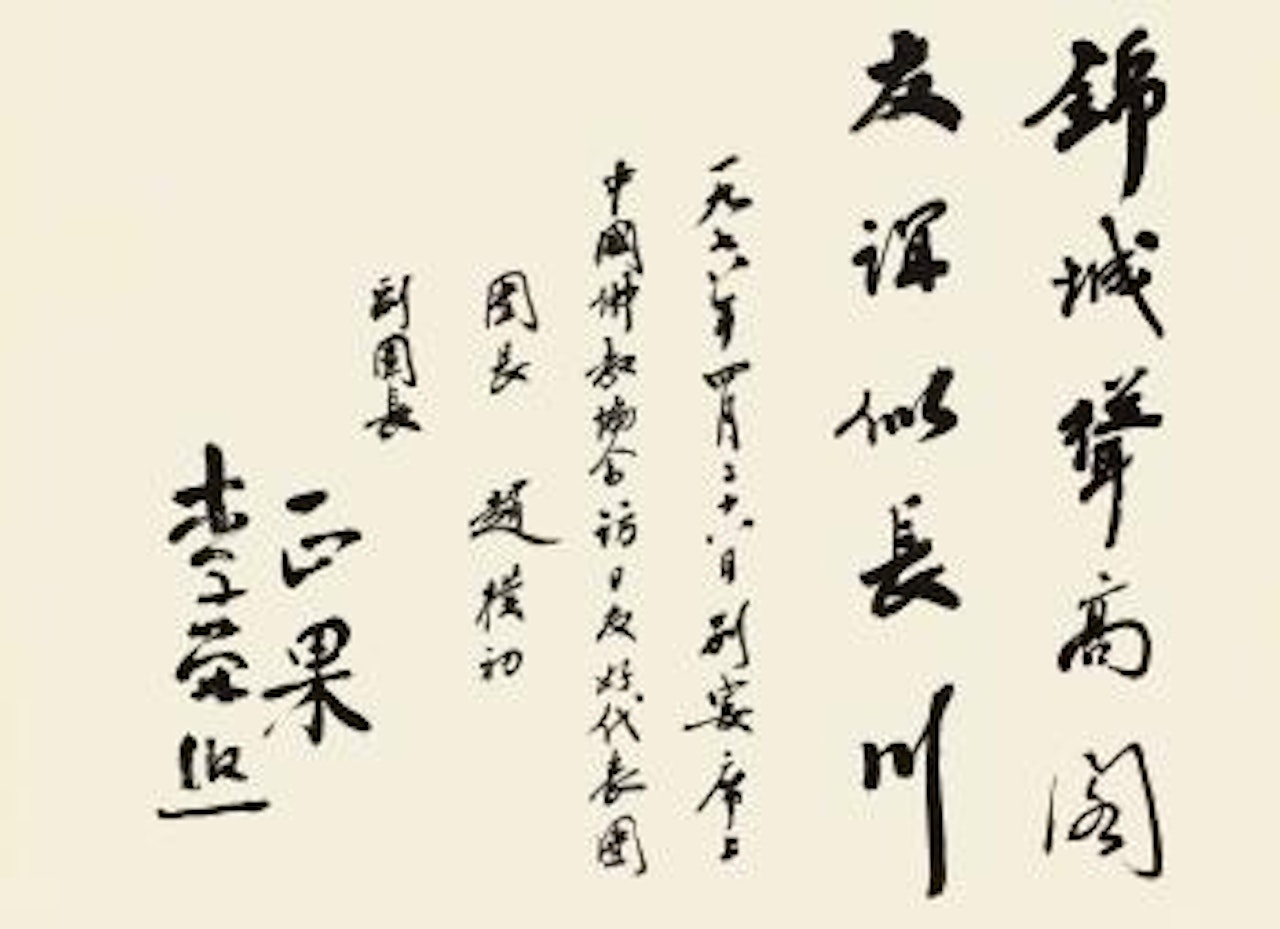 錦城聳高閣
友誼似長川
一九七八年四月二十八日別宴席上
中國佛教協会訪日友好代表團
團長 趙樸初
副團長
正果
李榮熙